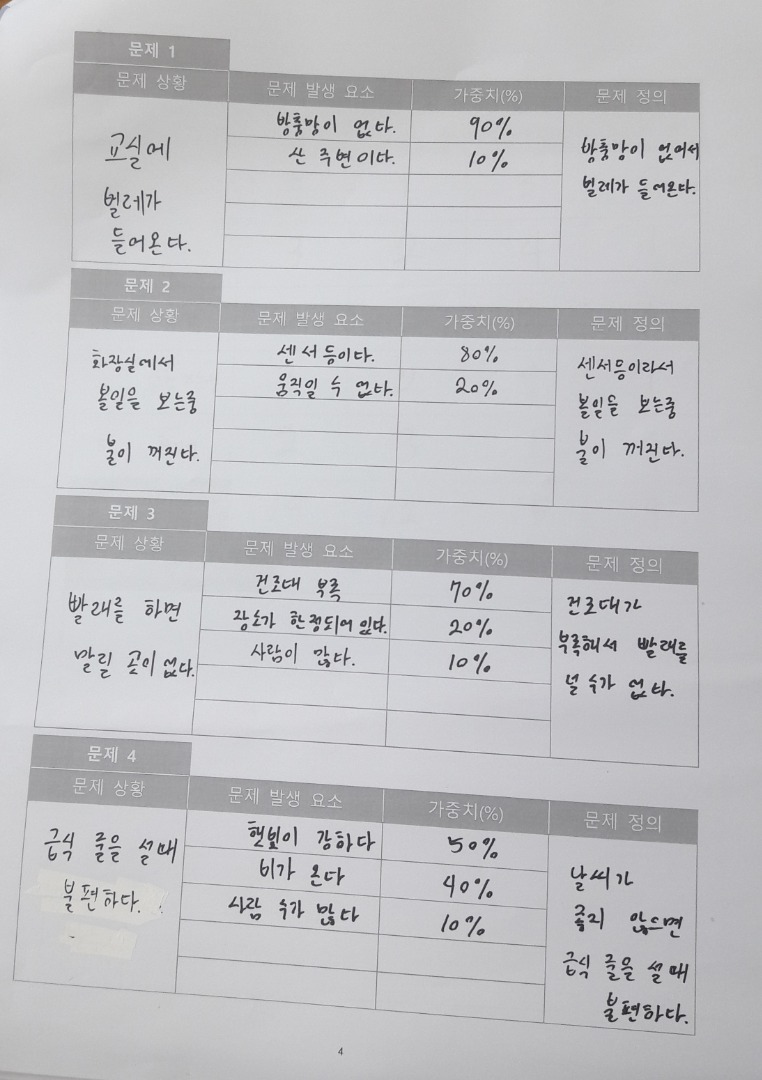 문제 1
문제 상황 문제 발생 요소 가중치(%) 문제 정의
교실에
벌레가
들어온다.
방충망이 없다. 90%
산 주변이다. 10%
방충망이 없어서
벌레가 들어온다.
문제 2
문제 상황 문제 발생 요소 가중치(%) 문제 정의
화장실에서
볼일을 보는중
불이 꺼진다.
센서등이다. 80%
움직일 수 없다. 20%
센서등이라서
볼일을 보는중
불이 꺼진다.
문제 3
문제 상황 문제 발생 요소 가중치(%) 문제 정의
빨래를 하면
말릴 곳이 없다.
건조대 부족 70%
장소가 한정되어 있다. 20%
사람이 많다. 10%
건조대가
부족해서 빨래를
널 수가 없다.
문제 4
문제 상황 문제 발생 요소 가중치(%) 문제 정의
급식 줄을 설때
불편하다.
햇빛이 강하다 50%
비가 온다 40%
사람 수가 많다 10%
날씨가
좋지 않으면
급식 줄을 설 때
불편하다.
4